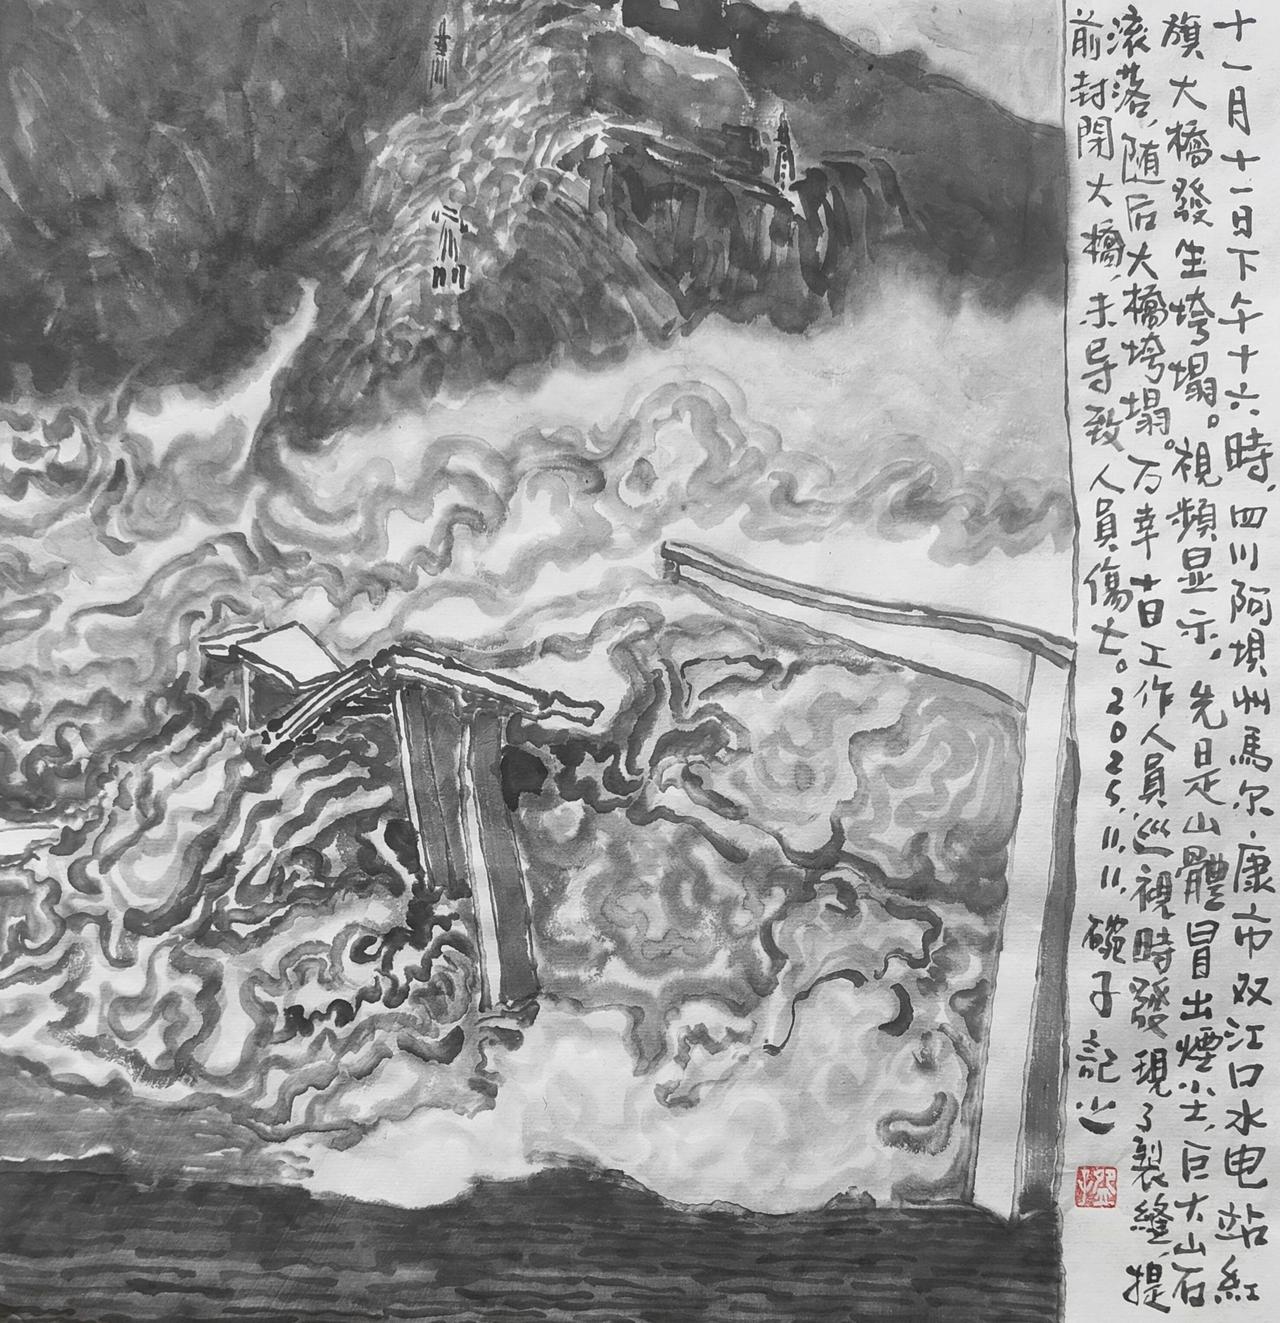 十一月十一日下午十六時，四川阿垻州馬尔康市双江口水电站紅
旗大橋發生垮塌。視頻显示，先日是山體冒出煙尘，巨大山石
滚落，随后大橋垮塌。万幸十日工作人員巡視時發現了製縫，提
前封閉大橋，未导致人員傷亡。2025.11.11.碗子記之